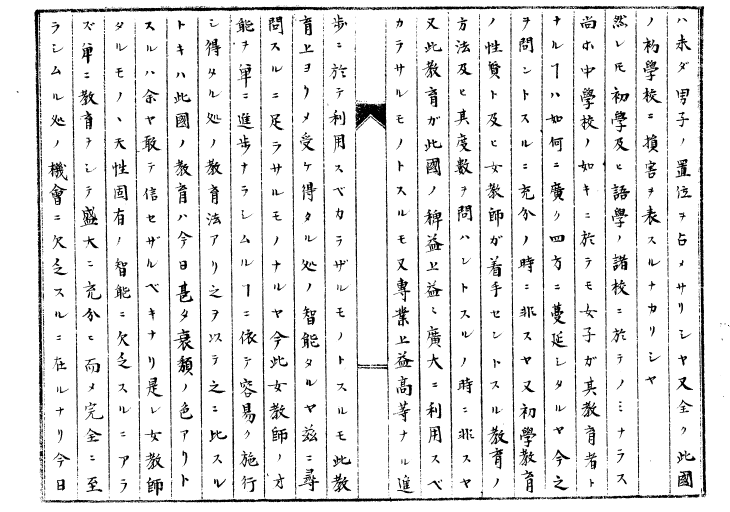 ハ未ダ男子ノ置位ヲ占メサリシヤ又全ク此國
ノ初學校ニ損害ヲ表スルナカリシヤ
然レ𪜈初學及ヒ語學ノ諸校ニ於テノミナラス
尚ホ中學校ノ如キニ於テモ女子ガ其教育者ト
ナルヿハ如何ニ廣ク四方ニ蔓延シタルヤ今之
ヲ問ントスルニ充分ノ時ニ非スヤ又初學教育
ノ性質ト及ヒ女教師ガ着手セントスル教育ノ
方法及ヒ其度數ヲ問ハントスルノ時ニ非スヤ
又此教育ガ此國ノ稗益上益〻廣大ニ利用スベ
カラサルモノトスルモ又專業上益高等ナル進
歩ニ於テ利用スベカラザルモノトスルモ此教
育上ヨリメ受ケ得タル処ノ智能タルヤ茲ニ尋
問スルニ足ラサルモノナルヤ今此女教師ノ才
能ヲ單ニ進歩ナラシムルヿニ依テ容易ク施行
シ得タル処ノ教育法アリ之ヲ以テ之ニ比スル
トキハ此國ノ教育ハ今日甚タ衰頽ノ色アリト
スルハ余ヤ敢テ信セザルベキナリ是レ女教師
タルモノヽ天性固有ノ智能ニ欠乏スルニアラ
ズ單ニ教育ヲシテ盛大ニ充分ニ而メ完全ニ至
ラシムル処ノ機會ニ欠乏スルニ在ルナリ今日